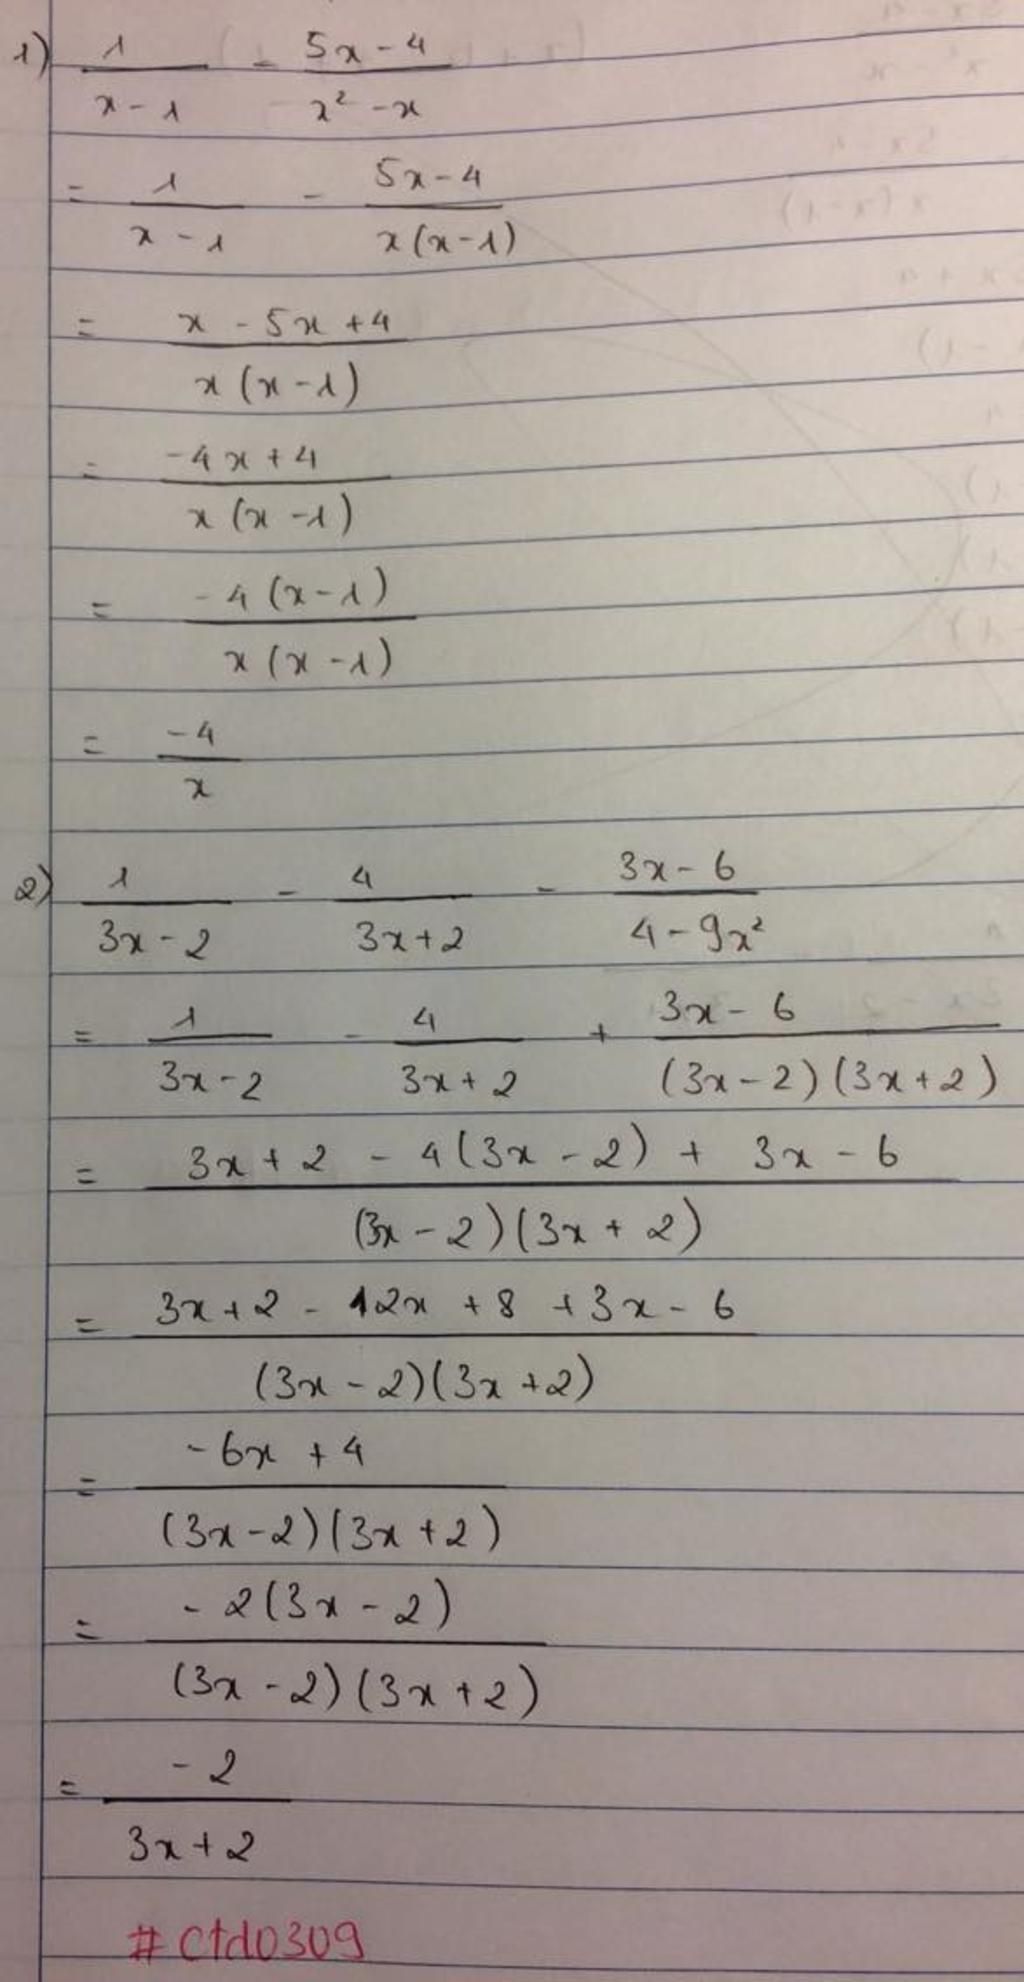 1) 1/(x-1) - (5x-4)/(x² -x)
= 1/(x-1) - (5x-4)/(x(x-1))
= (x-5x+4)/(x(x-1))
= (-4x+4)/(x(x-1))
= (-4(x-1))/(x(x-1))
= -4/x
2) 1/(3x-2) - 4/(3x+2) - (3x-6)/(4-9x²)
= 1/(3x-2) - 4/(3x+2) + (3x-6)/((3x-2)(3x+2))
= (3x+2 - 4(3x-2) + 3x-6)/((3x-2)(3x+2))
= (3x+2-12x+8+3x-6)/((3x-2)(3x+2))
= (-6x+4)/((3x-2)(3x+2))
= (-2(3x-2))/((3x-2)(3x+2))
= -2/(3x+2)
#ctd0309